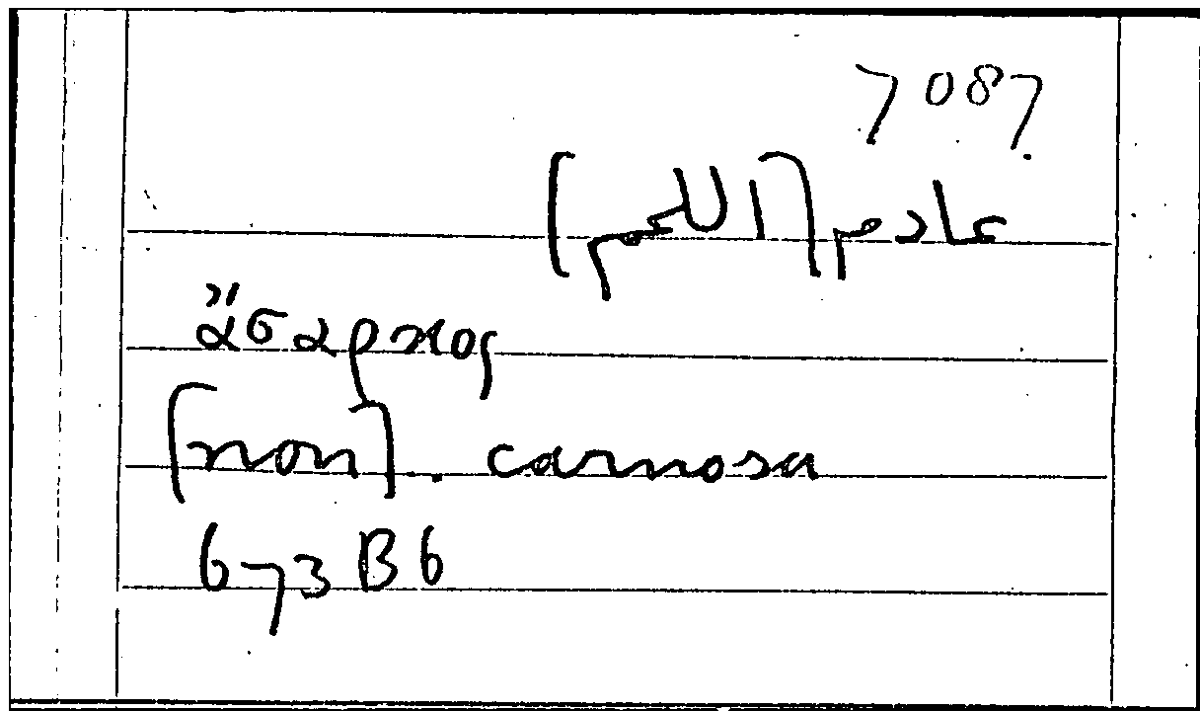 7087.
عادم [اللحم]
ἄσαρκος
[non]. carnosa
673 B6